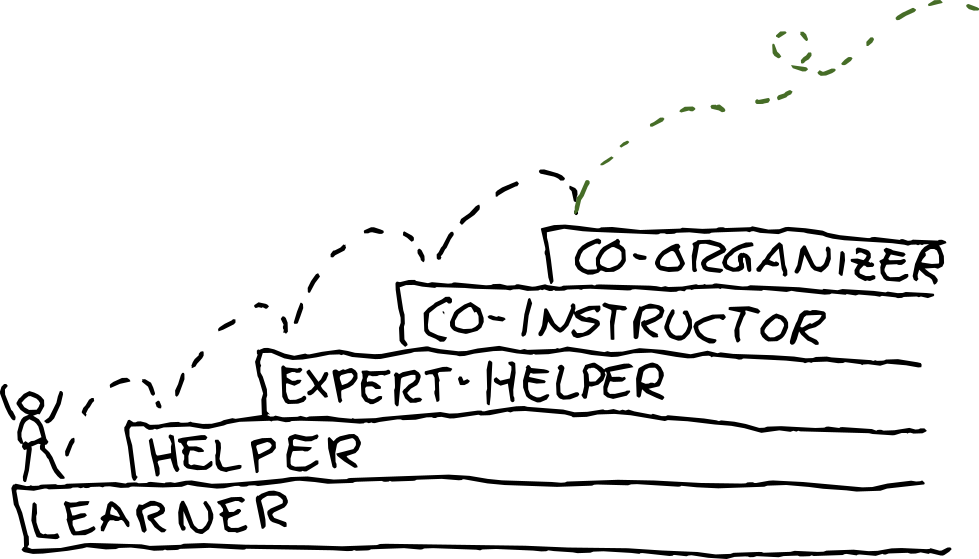 CO-ORGANIZER
CO-INSTRUCTOR
EXPERT-HELPER
HELPER
LEARNER